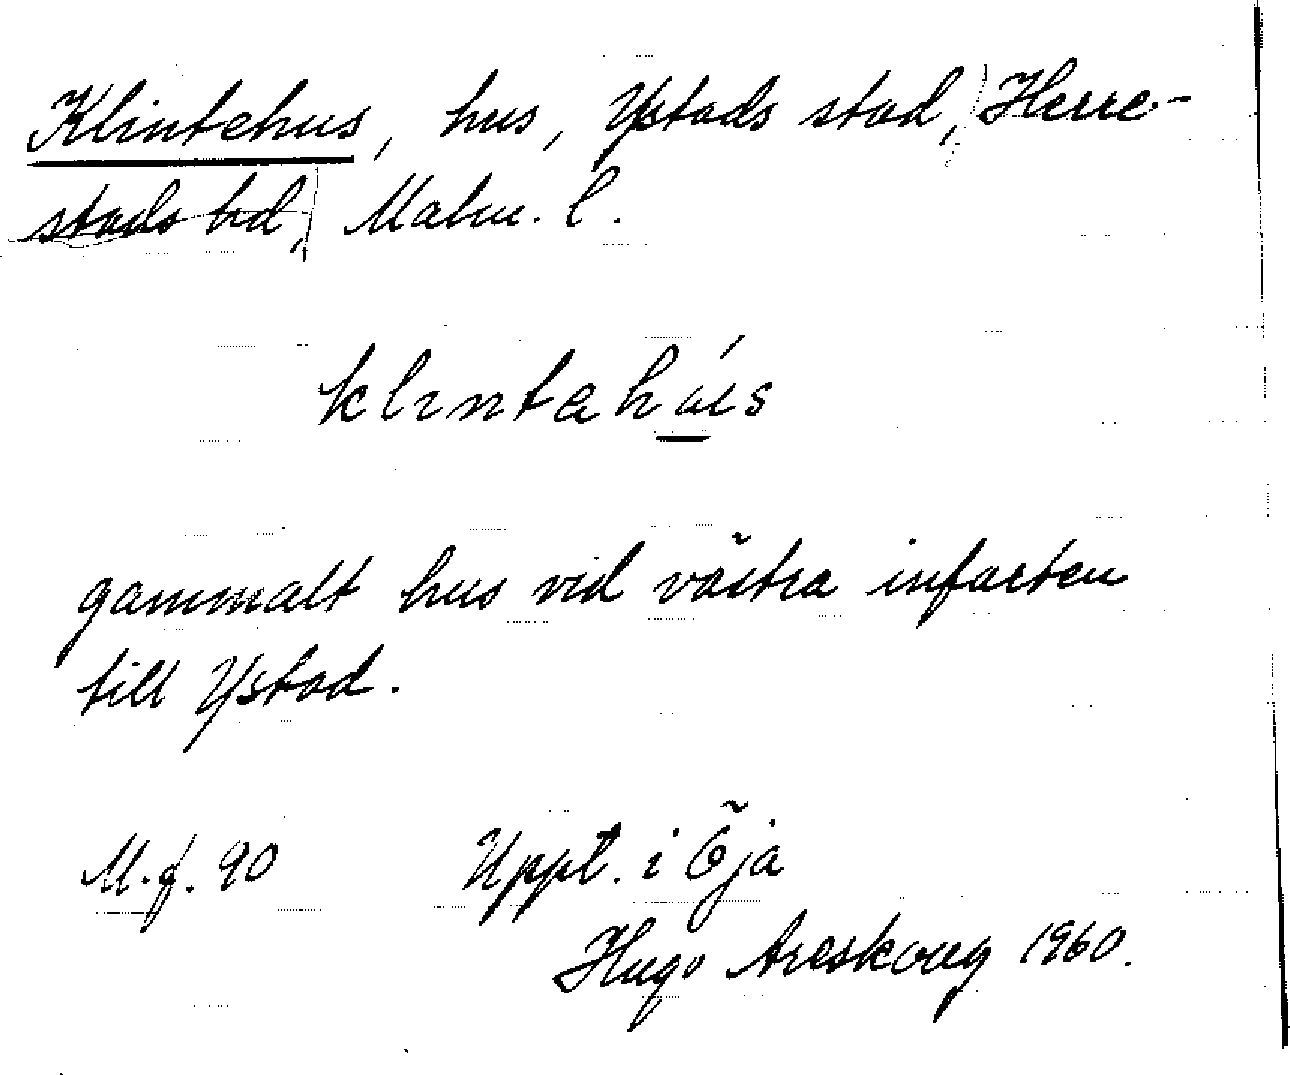 Klintehus, hus, Ystads stad, Herre-
stads hd, Malm. l.
klıntahúıs
gammalt hus vid västra infarten
till Ystad.
M.f. 90 Uppt. i Öja
Hugo Areskoug 1960.